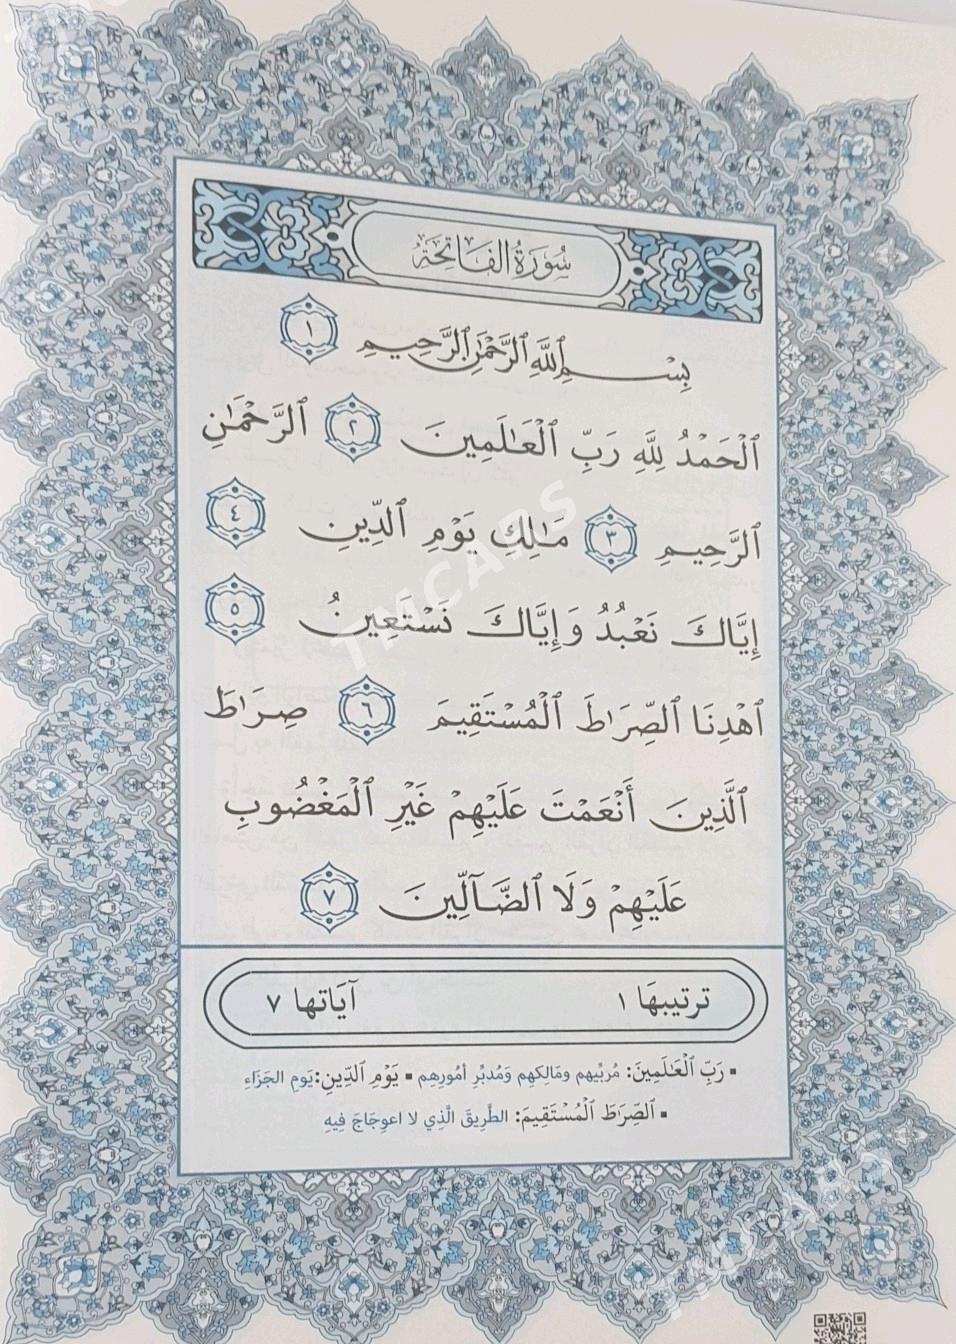 سُورَةُ الفَاتِحَةِ
بِسْمِ ٱللَّهِ ٱلرَّحْمَٰنِ ٱلرَّحِيمِ ١
ٱلْحَمْدُ لِلَّهِ رَبِّ ٱلْعَٰلَمِينَ ٢ ٱلرَّحْمَٰنِ
ٱلرَّحِيمِ ٣ مَٰلِكِ يَوْمِ ٱلدِّينِ ٤
إِيَّاكَ نَعْبُدُ وَإِيَّاكَ نَسْتَعِينُ ٥
ٱهْدِنَا ٱلصِّرَٰطَ ٱلْمُسْتَقِيمَ ٦ صِرَٰطَ
ٱلَّذِينَ أَنْعَمْتَ عَلَيْهِمْ غَيْرِ ٱلْمَغْضُوبِ
عَلَيْهِمْ وَلَا ٱلضَّآلِّينَ ٧
ترتيبهَا ١ آيَاتها ٧
▪ رَبِّ ٱلْعَٰلَمِينَ: مُربِّيهم ومَالِكهم وَمُدبِّر أمُورِهِم ▪ يَوْمِ ٱلدِّينِ: يَومِ الجَزَاءِ
▪ ٱلصِّرَٰطَ ٱلْمُسْتَقِيمَ: الطَّرِيقَ الَّذِي لا اعوِجَاجَ فِيهِ
TMCARS
TMCARS